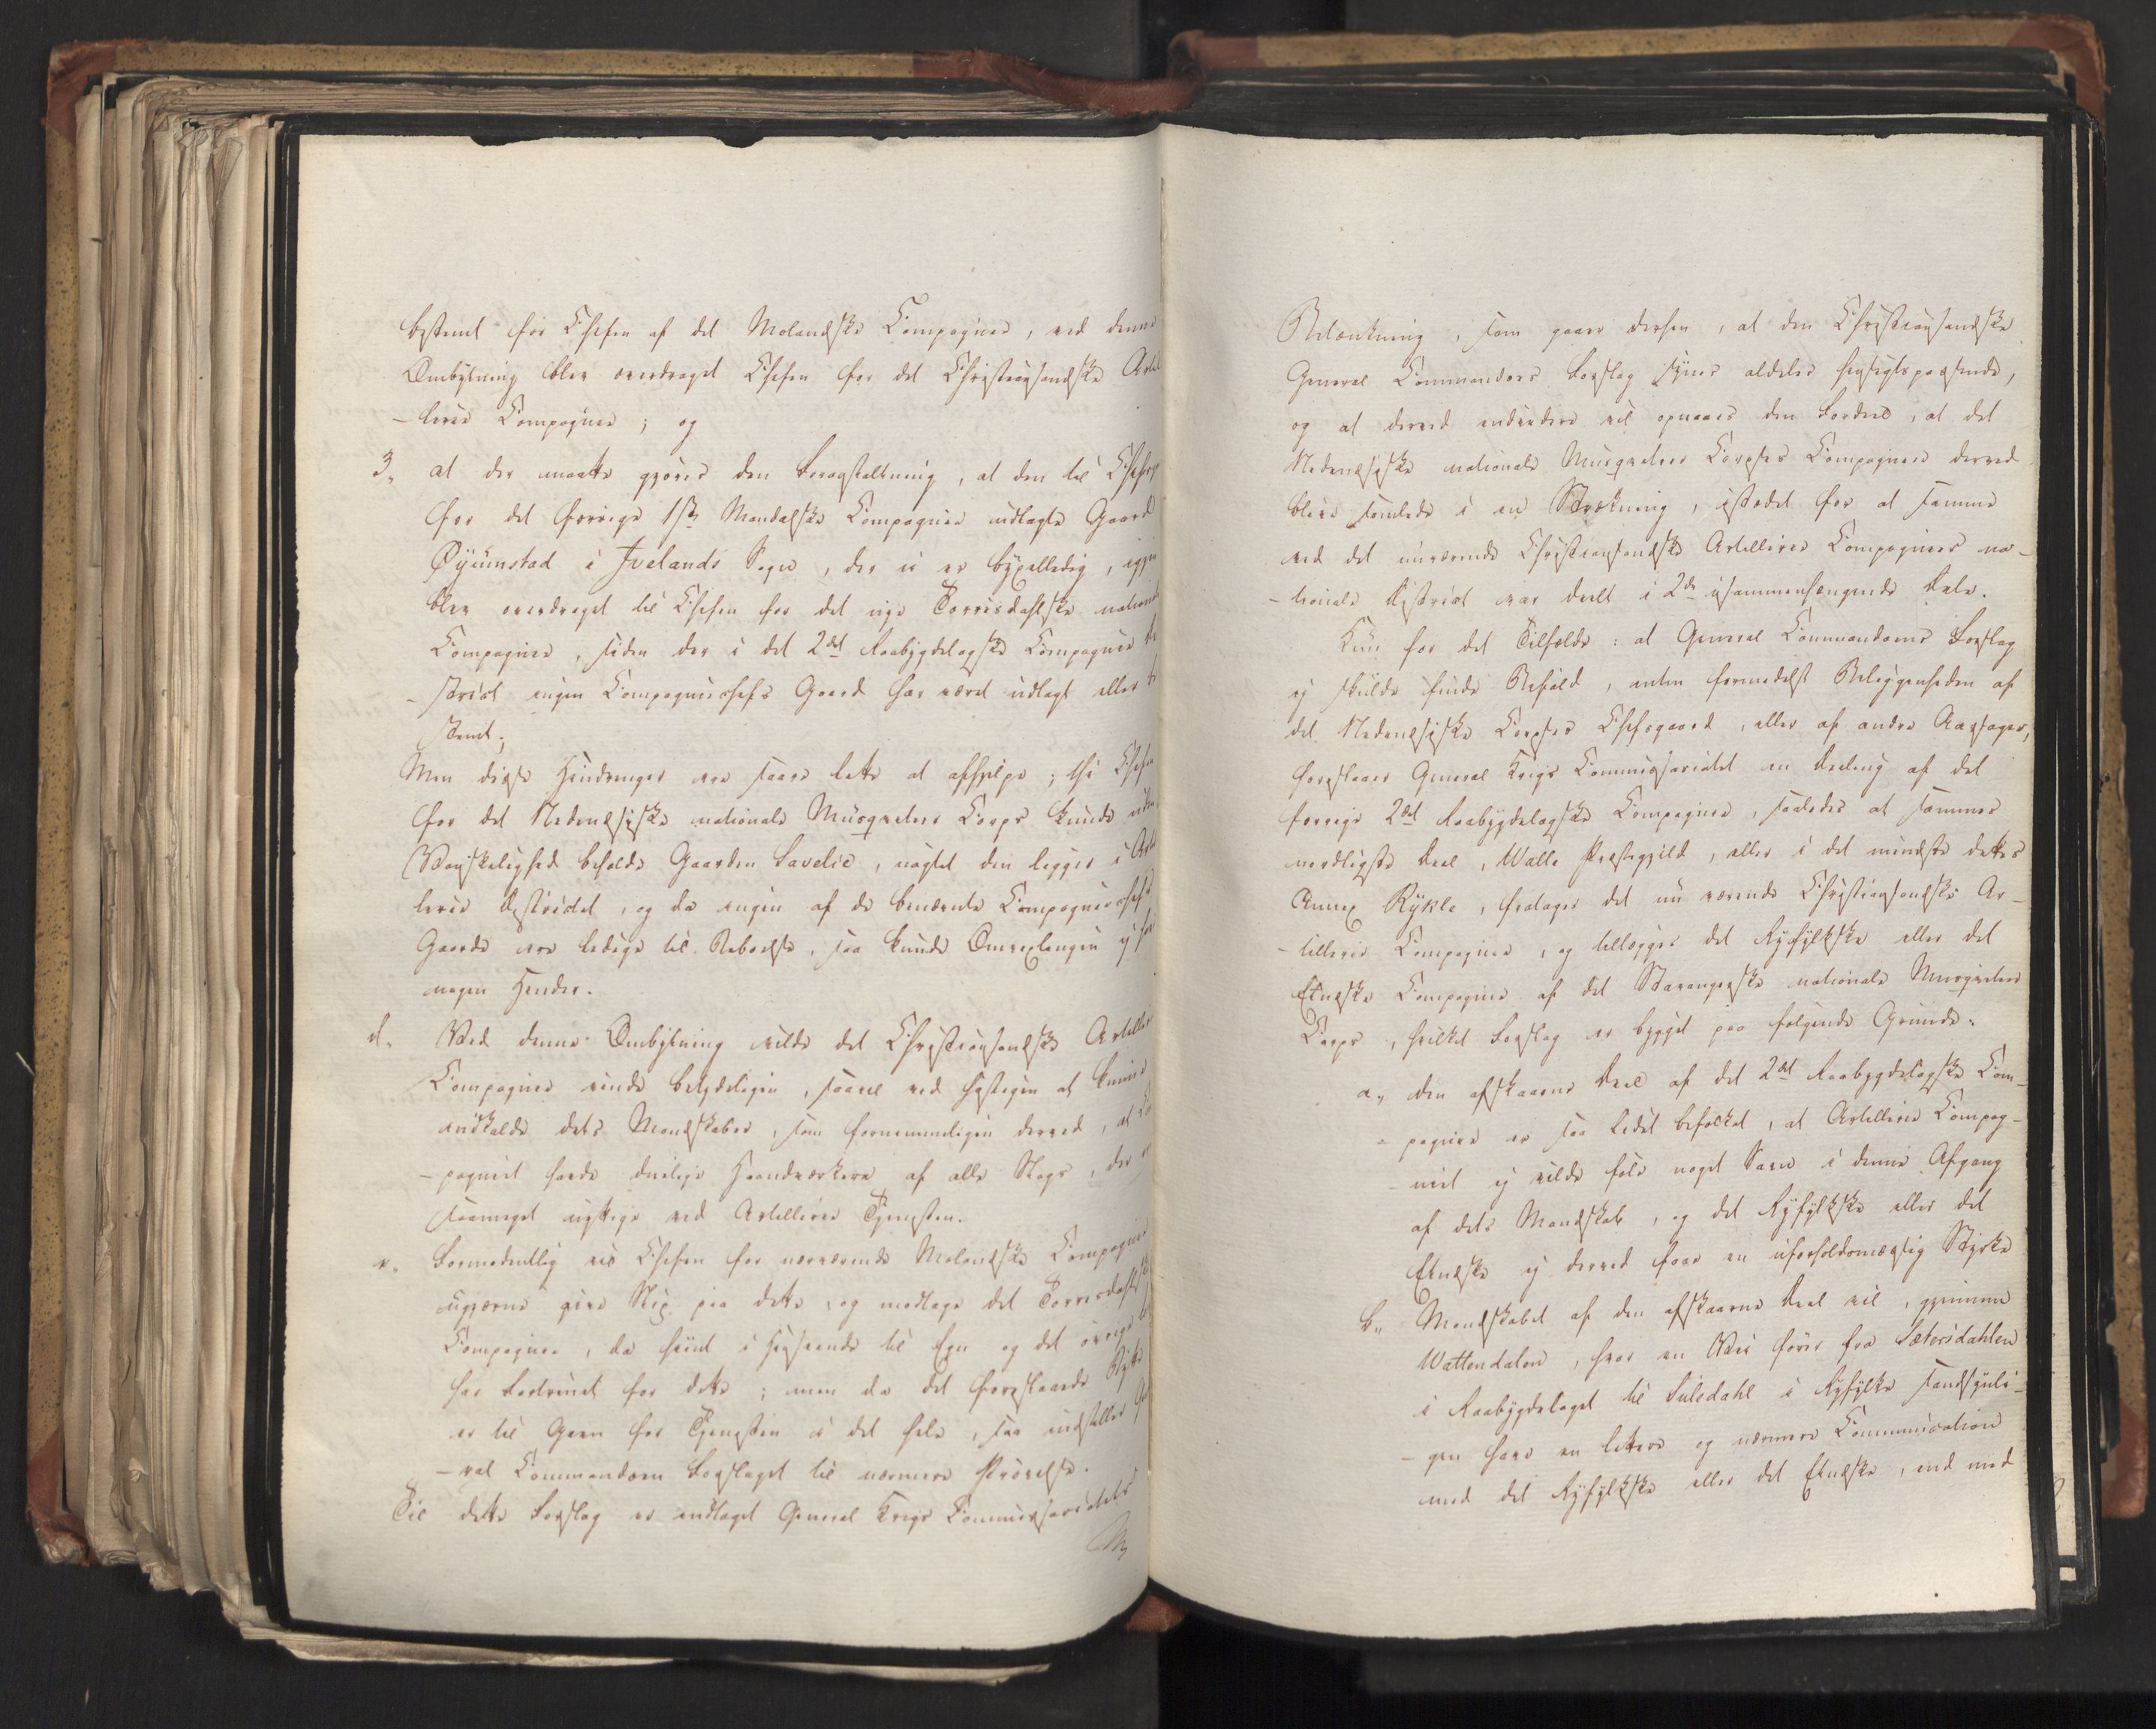 bestemt for Chefen af det Molandske Compagnie, ved denne
Ombytning blev overdraget Chefen for det Christiansandske Artil
-lerie Compagnie; og
3, at der maatte gjöres den Foranstaltning, at den til Chefsg
for det forrige 1ste Mandalske Compagnie udlagte Gaard
Øyumstad i Ivelands Sogn, der nu er byxelledig, igjen
blev overdraget til Chefen for det nye Torrisdahlske national
Compagnie, siden der i det 2det Raabygdelagske Compagnie Di
-strict ingen Compagniechefs Gaard har været udlagt eller be
stemt;
Men disse Hindringer ere saare lette at afhjelpe; thi Chefen
for det Nedenesiske nationale Musqveteer Corps kunde uden
Vanskelighed beholde Gaarden Favelie, uagtet den ligger i Artil
lerie Districtet, og da ingen af de benævnte Compagniechefs
Gaarde ere ledige til Beboelse, saa kunde Omvexlingen ej for
nogen Hinder.
d. Ved denne Ombytning vilde det Christiansandske Artillerie
Compagnie vinde betydeligen, saavel ved hastigen at kunne
indkalde dets Mandskaber, som fornemmeligen derved, at Com
-pagniet havde duelige Haandværkere af alle Slags, der ere
saameget nyttige ved Artillerie Tjenesten.
e. Formodentlig vil Chefen for nærværende Molandske Compagnie
ugjerne give Slip paa dette, og modtage det Torrisdahlske
Compagnie, da hiint i Henseende til Egn og det övrige
har Fortrinet for dette; men da det foreslaaede Bytte
er til Gavn for Tjenesten i det hele, saa indstiller Gene
-ral Commandoen Forslaget til nærmere Prövelse.
Til dette Forslag er indtaget General Krigs Commissariatets
Betænkning, som gaaer derhen, at den Christiansandske
General Commandoes Forslag synes aldeles hensigtspassende,
og at derved endvidere vil opnaaes den Fordeel, at det
Nedenesiske nationale Musqveteer Corpses Compagnier derved
blive samlede i en Strækning, istedet for at samme
ved det nuværende Christiansandske Artillerie Compagnies na-
-tionale District var deelt i 2de usammenhængende Dele.
Kun for det Tilfælde: at General Commandoens Forslag
ej skulde finde Bifald, enten formedelst Beliggenheden af
det Nedenesiske Corpses Chefsgaard, eller af andre Aarsager,
foreslaaer General Krigs Commissariatet en Deeling af det
forrige 2det Raabygdelagske Compagnie, saaledes at sammes
nordligste Deel, Walle Præstegjeld, eller i det mindste dettes
Annex Rykle, fratages det nu værende Christiansandske Ar-
-tillerie Compagnie, og tillægges det Ryfylkske eller det
Etneske Compagnie af det Stavangerske nationale Musqveteer
Corps, hvilket Forslag er bygget paa fölgende Grunde:
a, den afskaarne Deel af det 2det Raabygdelagske Com-
-pagnie er saa lidet befolket, at Artillerie Compag-
-niet ej vilde föle noget Savn i denne Afgang
af dets Mandskab, og det Ryfylkske eller det
Etneske ej derved faae en uforholdsmæssig Styrke
b, Mandskabet af den afskaarne Deel vil, gjennem
Wattendalen, hvor en Vei förer fra Sætersdahlen
i Raabygdelaget til Suledahl i Ryfylke sandsynli-
-gen have en lettere og nærmere Communication
med det Ryfylkske eller det Etneske, end med